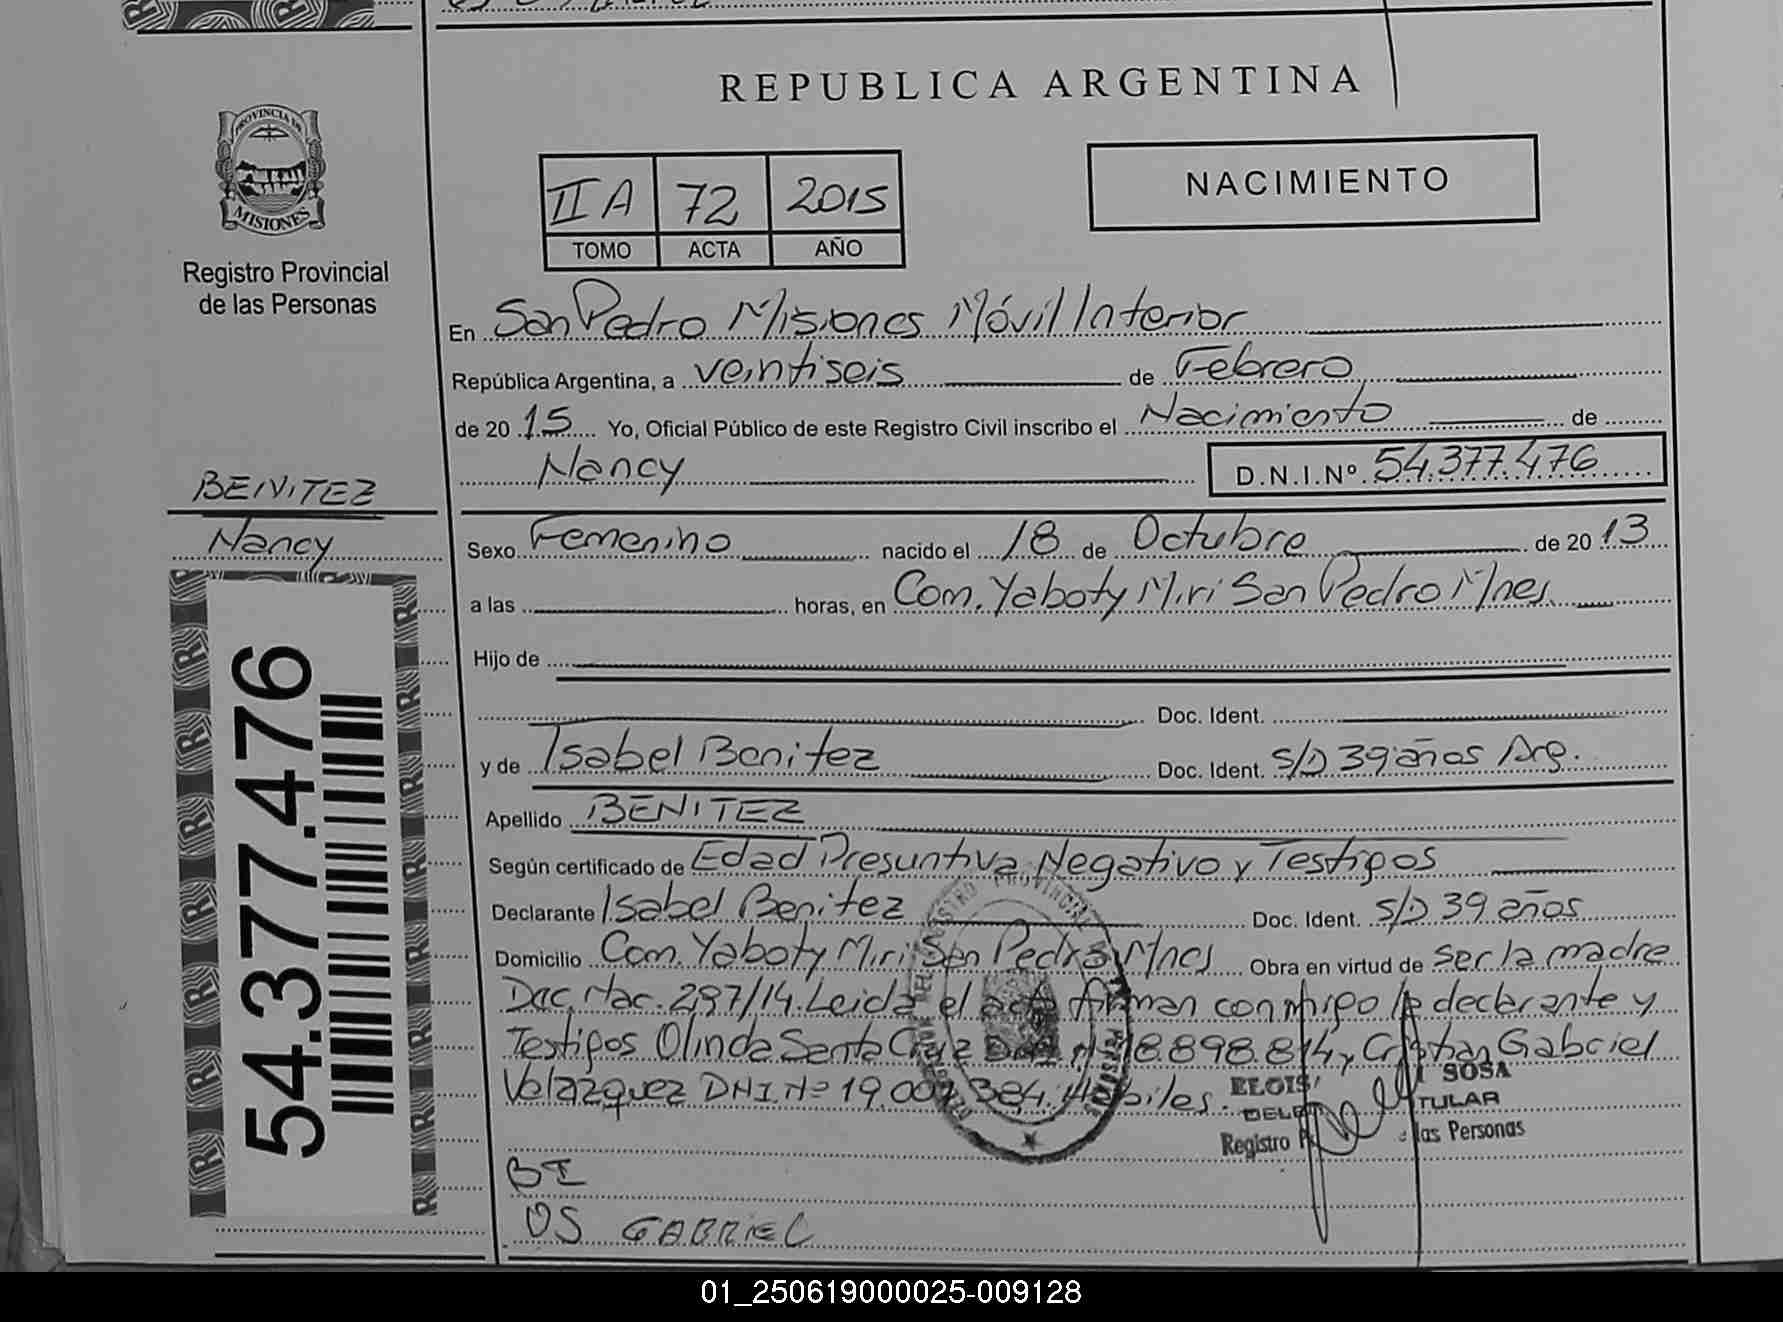 REPUBLICA ARGENTINA
PROVINCIA DE
MISIONES
Registro Provincial
de las Personas
II A 72 2015
TOMO ACTA AÑO
NACIMIENTO
En San Pedro Misiones Móvil Interior
República Argentina, a veintiseis de Febrero
de 2015 Yo, Oficial Público de este Registro Civil inscribo el Nacimiento de
Nancy D.N.I.Nº 54.377.476
BENITEZ
Nancy
54.377.476
Sexo Femenino nacido el 18 de Octubre de 2013
a las horas, en Com. Yaboty Miri San Pedro Mnes
Hijo de
Doc. Ident.
y de Isabel Benitez Doc. Ident. S/D 39 años Arg.
Apellido BENITEZ
Según certificado de Edad Presuntiva, Negativo y Testigos
Declarante Isabel Benitez Doc. Ident. S/D 39 años
Domicilio Com. Yaboty Miri San Pedro Mnes Obra en virtud de ser la madre
Dec. Nac. 297/14. Leida el acta firman conmigo la declarante y
Testigos Olinda Santa Cruz 18.898.814 y Cristian Gabriel
Velazquez DNI. Nº 19.007.384. Habiles.
ELOIS SOSA
TULAR
Registro las Personas
BI
OS GABRIEL
01_250619000025-009128